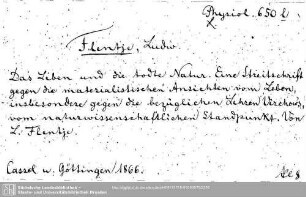 Physiol. 650 l
Flentje, Ludw.
Das Leben und die todte Natur. Eine Streitschrift
gegen die materialistischen Ansichten vom Leben,
insbesondere gegen die bezüglichen Lehren Virchows,
vom naturwissenschaftlichen Standpunkt. Von
L. Flentje.
Cassel u. Göttingen 1866.